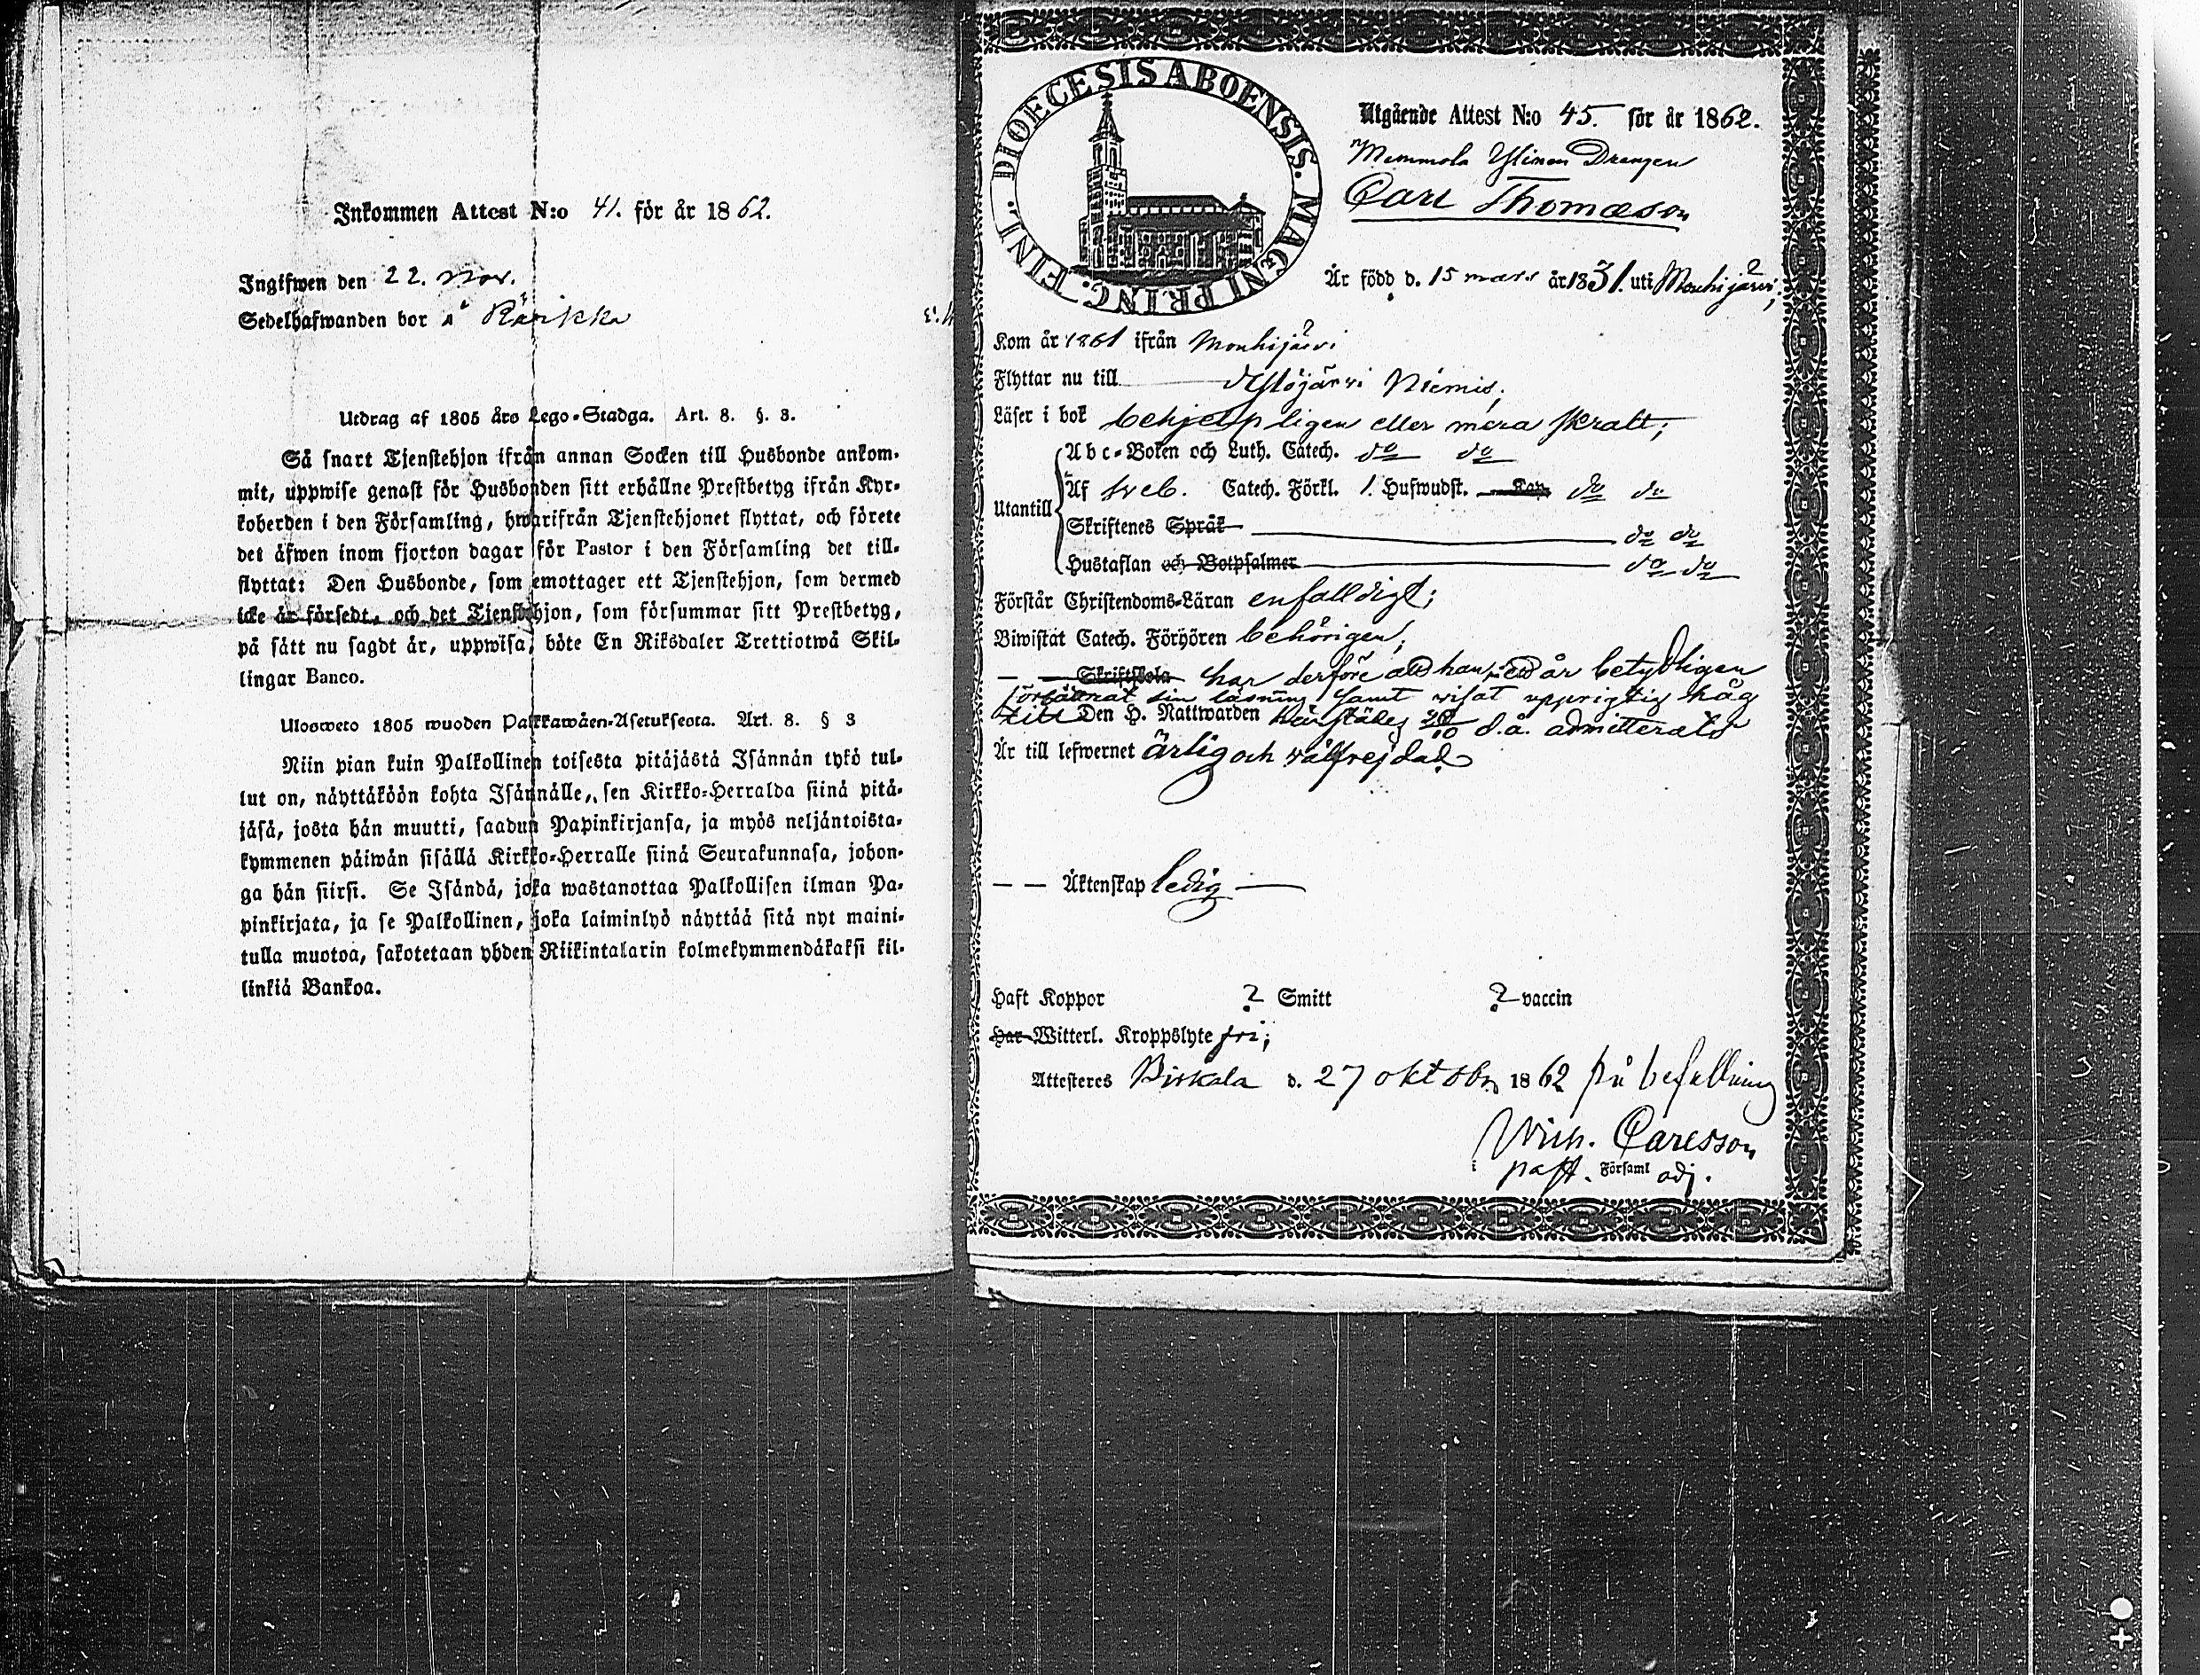 Inkommen Attest N:o 41. för år 1862.
Ingifwen den 22. Nov.
Sedelhafwanden bor å Räikkä
Utdrag af 1805 års Lego-Stadga. Art. 8. §. 3.
Så snart Tjenstehjon ifrån annan Socken till Husbonde ankom-
mit, uppwise genast för Husbonden sitt erhållne Prestbetyg ifrån Kyr-
koherden i den Församling, hwarifrån Tjenstehjonet flyttat, och förete
det äfwen inom fjorton dagar för Pastor i den Församling det till-
flyttat: Den Husbonde, som emottager ett Tjenstehjon, som dermed
icke är försedt, och det Tjenstehjon, som försummar sitt Prestbetyg,
på sätt nu sagdt är, uppwisa, böte En Riksdaler Trettiotwå Skil-
lingar Banco.
Ulosweto 1805 wuoden Palkkawäen-Asetuksesta. Art. 8. § 3
Niin pian kuin Palkollinen toisesta pitäjästä Isännän tykö tul-
lut on, näyttäköön kohta Isännälle, sen Kirkko-Herralda siinä pitä-
jäsä, josta hän muutti, saadun Papinkirjansa, ja myös neljäntoista-
kymmenen päiwän sisällä Kirkko-Herralle siinä Seurakunnasa, johon-
ga hän siirsi. Se Isändä, joka wastanottaa Palkollisen ilman Pa-
pinkirjata, ja se Palkollinen, joka laiminlyö näyttää sitä nyt maini-
tulla muotoa, sakotetaan yhden Riikintalarin kolmekymmendäkaksi kil-
linkiä Bankoa.
DIOECESIS ABOENSIS. MAGNI PRINC. FINL.
Utgående Attest N:o 45. för år 1862.
Memmola Ylinen Drengen
Carl Thomasson
Är född d. 15 mars år 1831. uti Mouhijärvi;
Kom år 1861 ifrån Mouhijärvi
Flyttar nu till Ylöjärvi Niemis;
Läser i bok behjelpligen eller mera skralt;
Utantill
Abc-Boken och Luth. Catech. do do
Af Sveb. Catech. Förkl. 1. Hufwudst. Kap do do
Skriftenes Språk do do
Hustaflan och Botpsalmer do do
Förstår Christendoms-Läran enfaldigt;
Biwistat Catech. Förhören behörigen;
Skriftskola har derföre att han med år betydligen
förbättrat sin läsning samt visat uppriktig håg
till Den H. Nattwarden härstädes 20/10 d.å. admitterats
Är till lefwernet ärlig och välfrejdad
Äktenskap ledig
Haft Koppor ? Smitt ? vaccin
Har Witterl. Kroppslyte fri;
Attesteres Birkala d. 27 oktober 1862 på befallning
Wilh. Carlsson
i past. Församl adj.